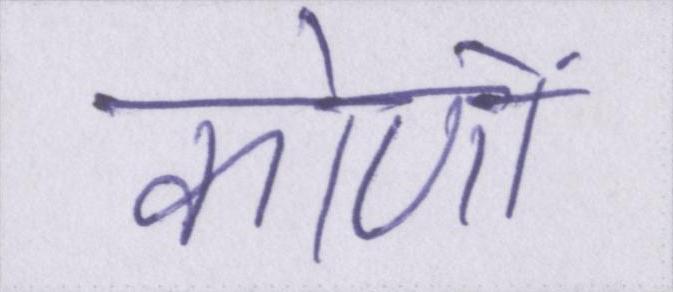 कोणों